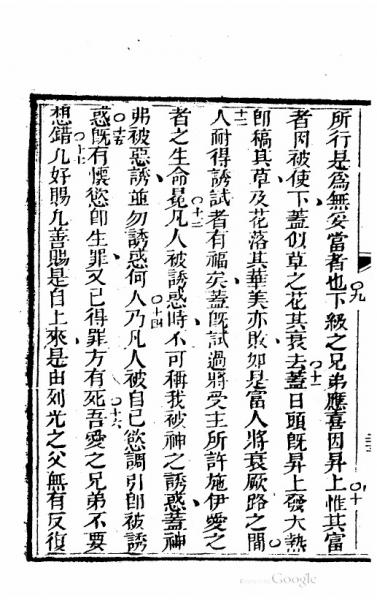 所行是爲無妥當者也〇九下級之兄弟應喜因昇上〇十惟其富
者因被使下蓋似草之花其衰去〇十一蓋日頭旣昇上發大熱
卽稿其草及花落其華美亦敗如是富人將衰厥路之間
十二人耐得誘試者有福矣蓋旣試過將受主所許施伊愛之
者之生命冕〇十三凡人被誘惑時不可稱我被神之誘惑蓋神
弗被惡誘並勿誘惑何人〇十四乃凡人被自己慾調引卽被誘
惑〇十五旣有懷慾卽生罪又已得罪方有死〇十六吾愛之兄弟不要
想錯〇十七凡好賜凡善賜是自上來是由列光之父無有反復
Google